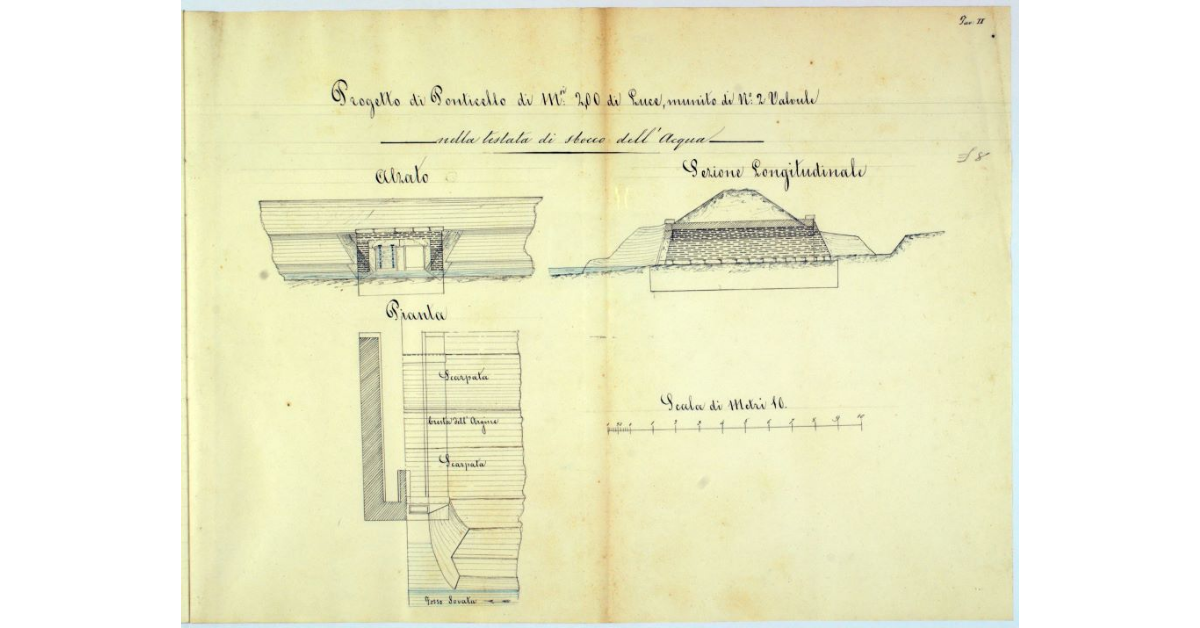 Tav. II
Progetto di Ponticello di M.ri 2,00 di Luce, munito di N.o 2 Valvule
nella testata di sbocco dell'Acqua
Alzato
Sezione Longitudinale
Pianta
Scarpata
Cresta dell'Argine
Scarpata
Scala di Metri 10.
Fosso